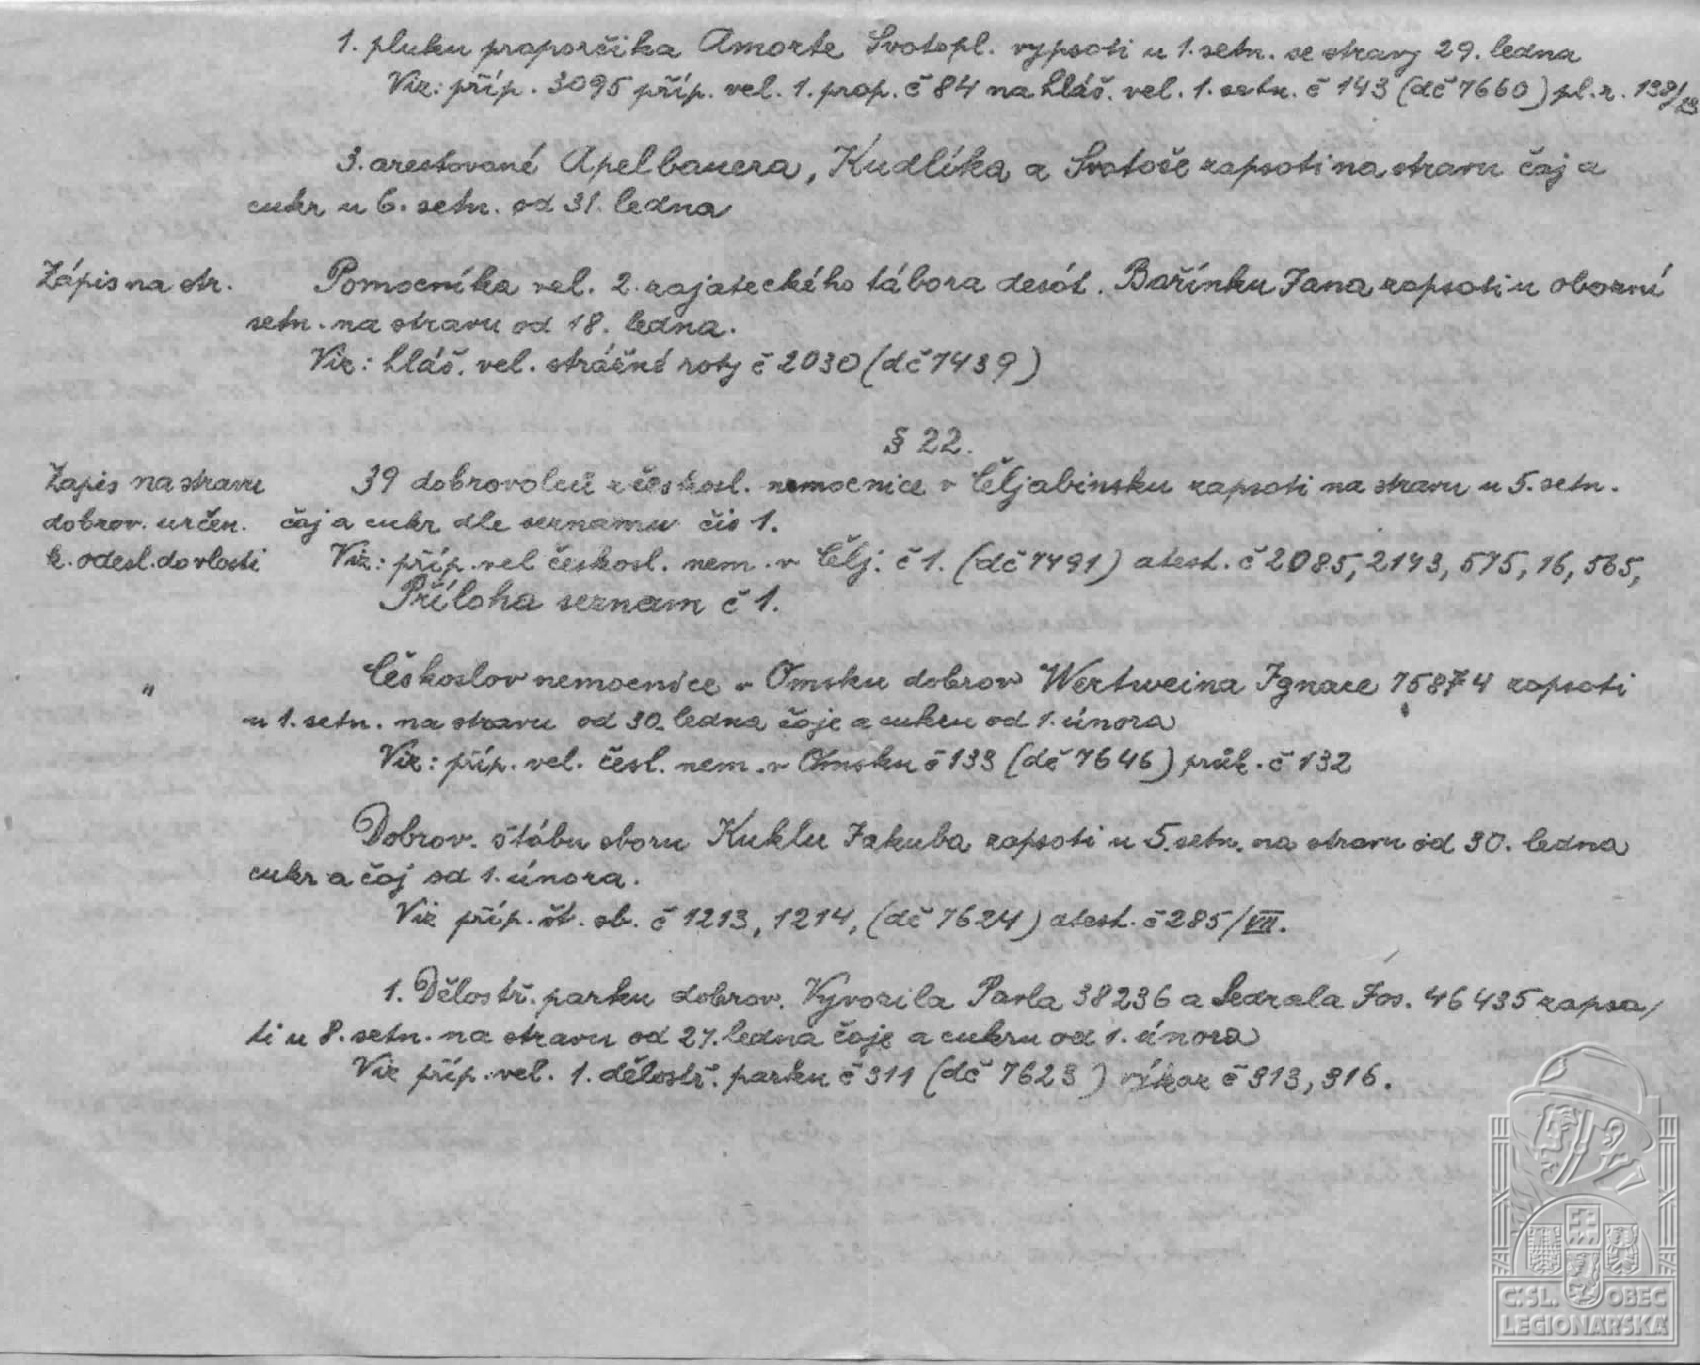 1. pluku praporčíka Amorte Svatopl. vypsati u 1. setn. se stravy 29. ledna
Viz: příp. 3095 příp. vel. 1. prap. č 84 na hláš. vel. 1. setn. č 143 (dč 7660) pl. r. 138/
3. arestované Apelbauera, Kudlíka a Svatoše zapsati na stravu čaj a
cukr u 6. setn. od 31. ledna
Zápis na str.
Pomocníka vel. 2. zajateckého tábora desát. Bařínku Jana zapsati u obozní
setn. na stravu od 18. ledna.
Viz: hláš. vel. strážné roty č 2030 (dč 7439)
§ 22.
Zapis na stravu
dobrov. určen.
k. odesl. do vlasti
39 dobrovolců z českosl. nemocnice v Čeljabinsku zapsati na stravu u 5. setn.
čaj a cukr dle seznamu čis 1.
Viz: příp. vel českosl. nem. v Čelj. č 1. (dč 7491) atest. č 2085, 2143, 575, 16, 565,
Příloha seznam č 1.
"
Českoslov nemocnice v Omsku dobrov Wertweina Ignace 75874 zapsati
u 1. setn. na stravu od 30. ledna čaje a cukru od 1. února
Viz: příp. vel. česl. nem. v Omsku č 133 (dč 7646) průk. č 132
Dobrov. štábu sboru Kuklu Jakuba zapsati u 5. setn. na stravu od 30. ledna
cukr a čaj od 1. února.
Viz příp. št. sb. č 1213, 1214, (dč 7624) atest. č 285/VII.
1. Dělostř. parku dobrov. Vyvozila Pavla 38236 a Sedzala Jos. 46435 zapsa/
ti u 8. setn. na stravu od 27. ledna čaje a cukru od 1. února
Viz příp. vel. 1. dělostř. parku č 311 (dč 7623) výkaz č 313, 316.
Č.SL. OBEC
LEGIONÁŘSKÁ